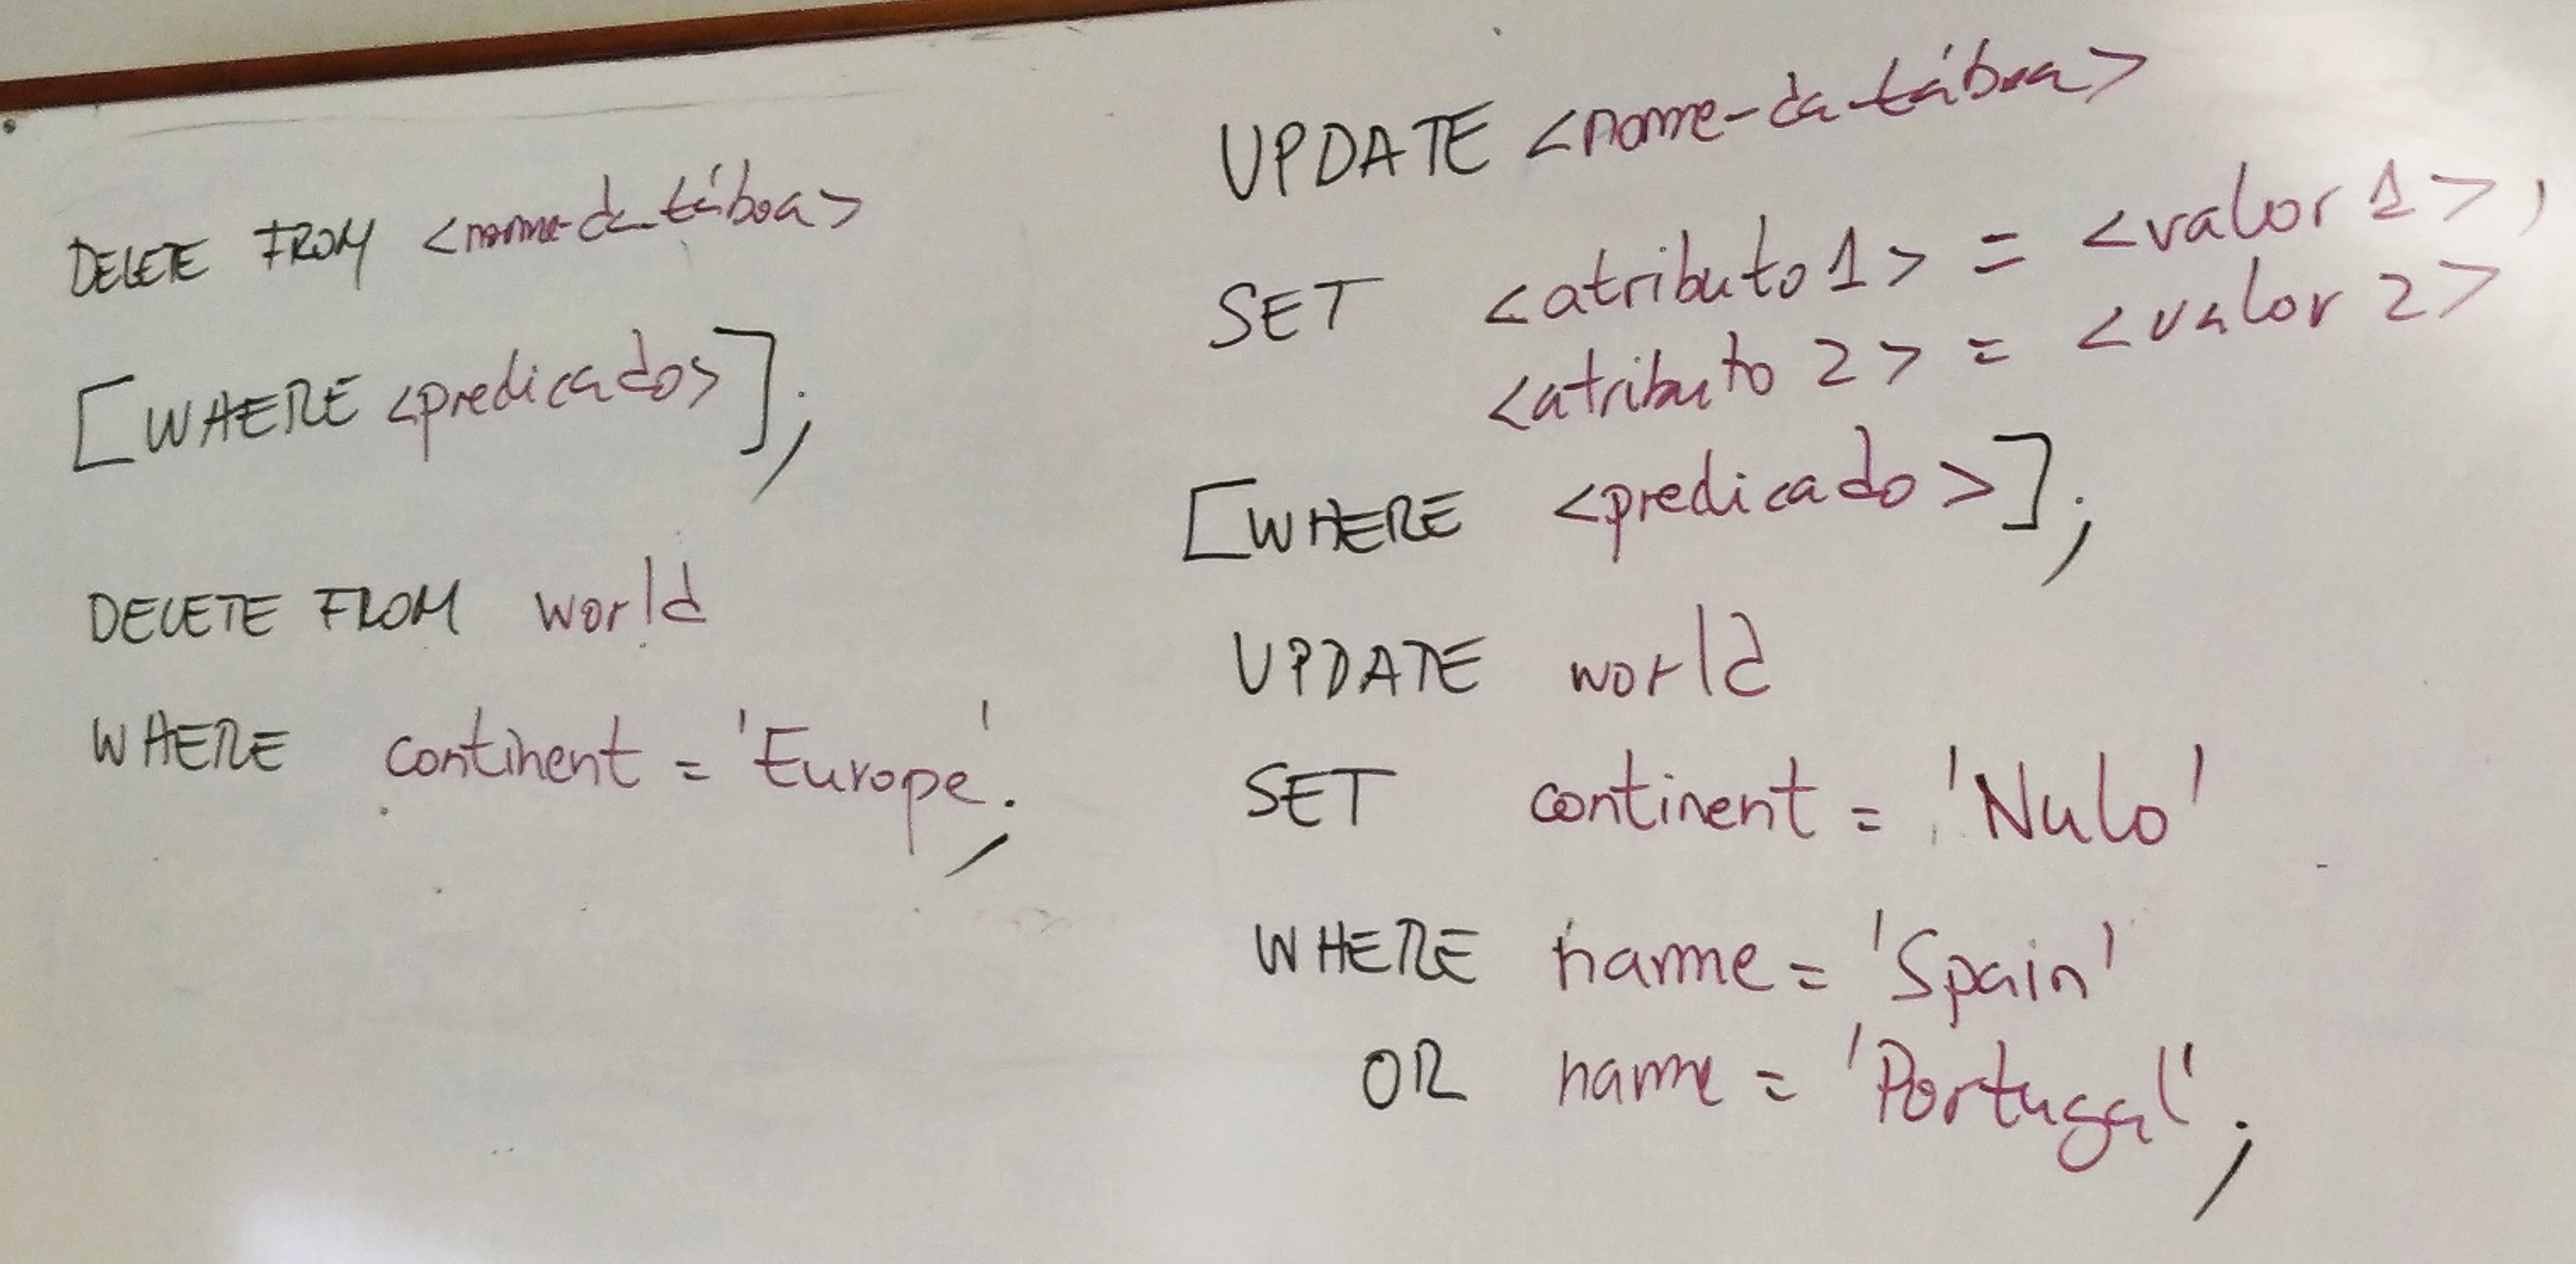 DELETE FROM <nome-da-táboa>
[WHERE <predicados>];
DELETE FROM world
WHERE continent = 'Europe';
UPDATE <nome-da-táboa>
SET <atributo1> = <valor 1>,
<atributo 2> = <valor 2>
[WHERE <predicado>];
UPDATE world
SET continent = 'Nulo'
WHERE name = 'Spain'
OR name = 'Portugal';